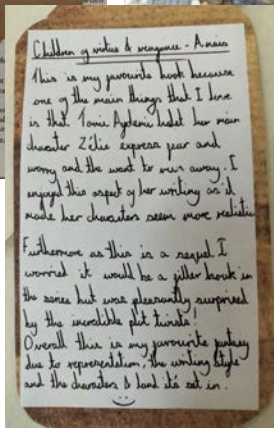 Children of virtue & vengeance - Anais
This is my favourite book because
one of the main things that I love
is that Tomi Adeyemi let her main
character Zélie express fear and
worry and the want to run away. I
enjoyed this aspect of her writing as it
made her characters seem more realistic
Furthermore as this is a sequel I
worried it would be a filler book in
the series but was pleasantly surprised
by the incredible plot twists!
Overall this is my favourite fantasy
due to representation, the writing style
and the characters & land it's set in.